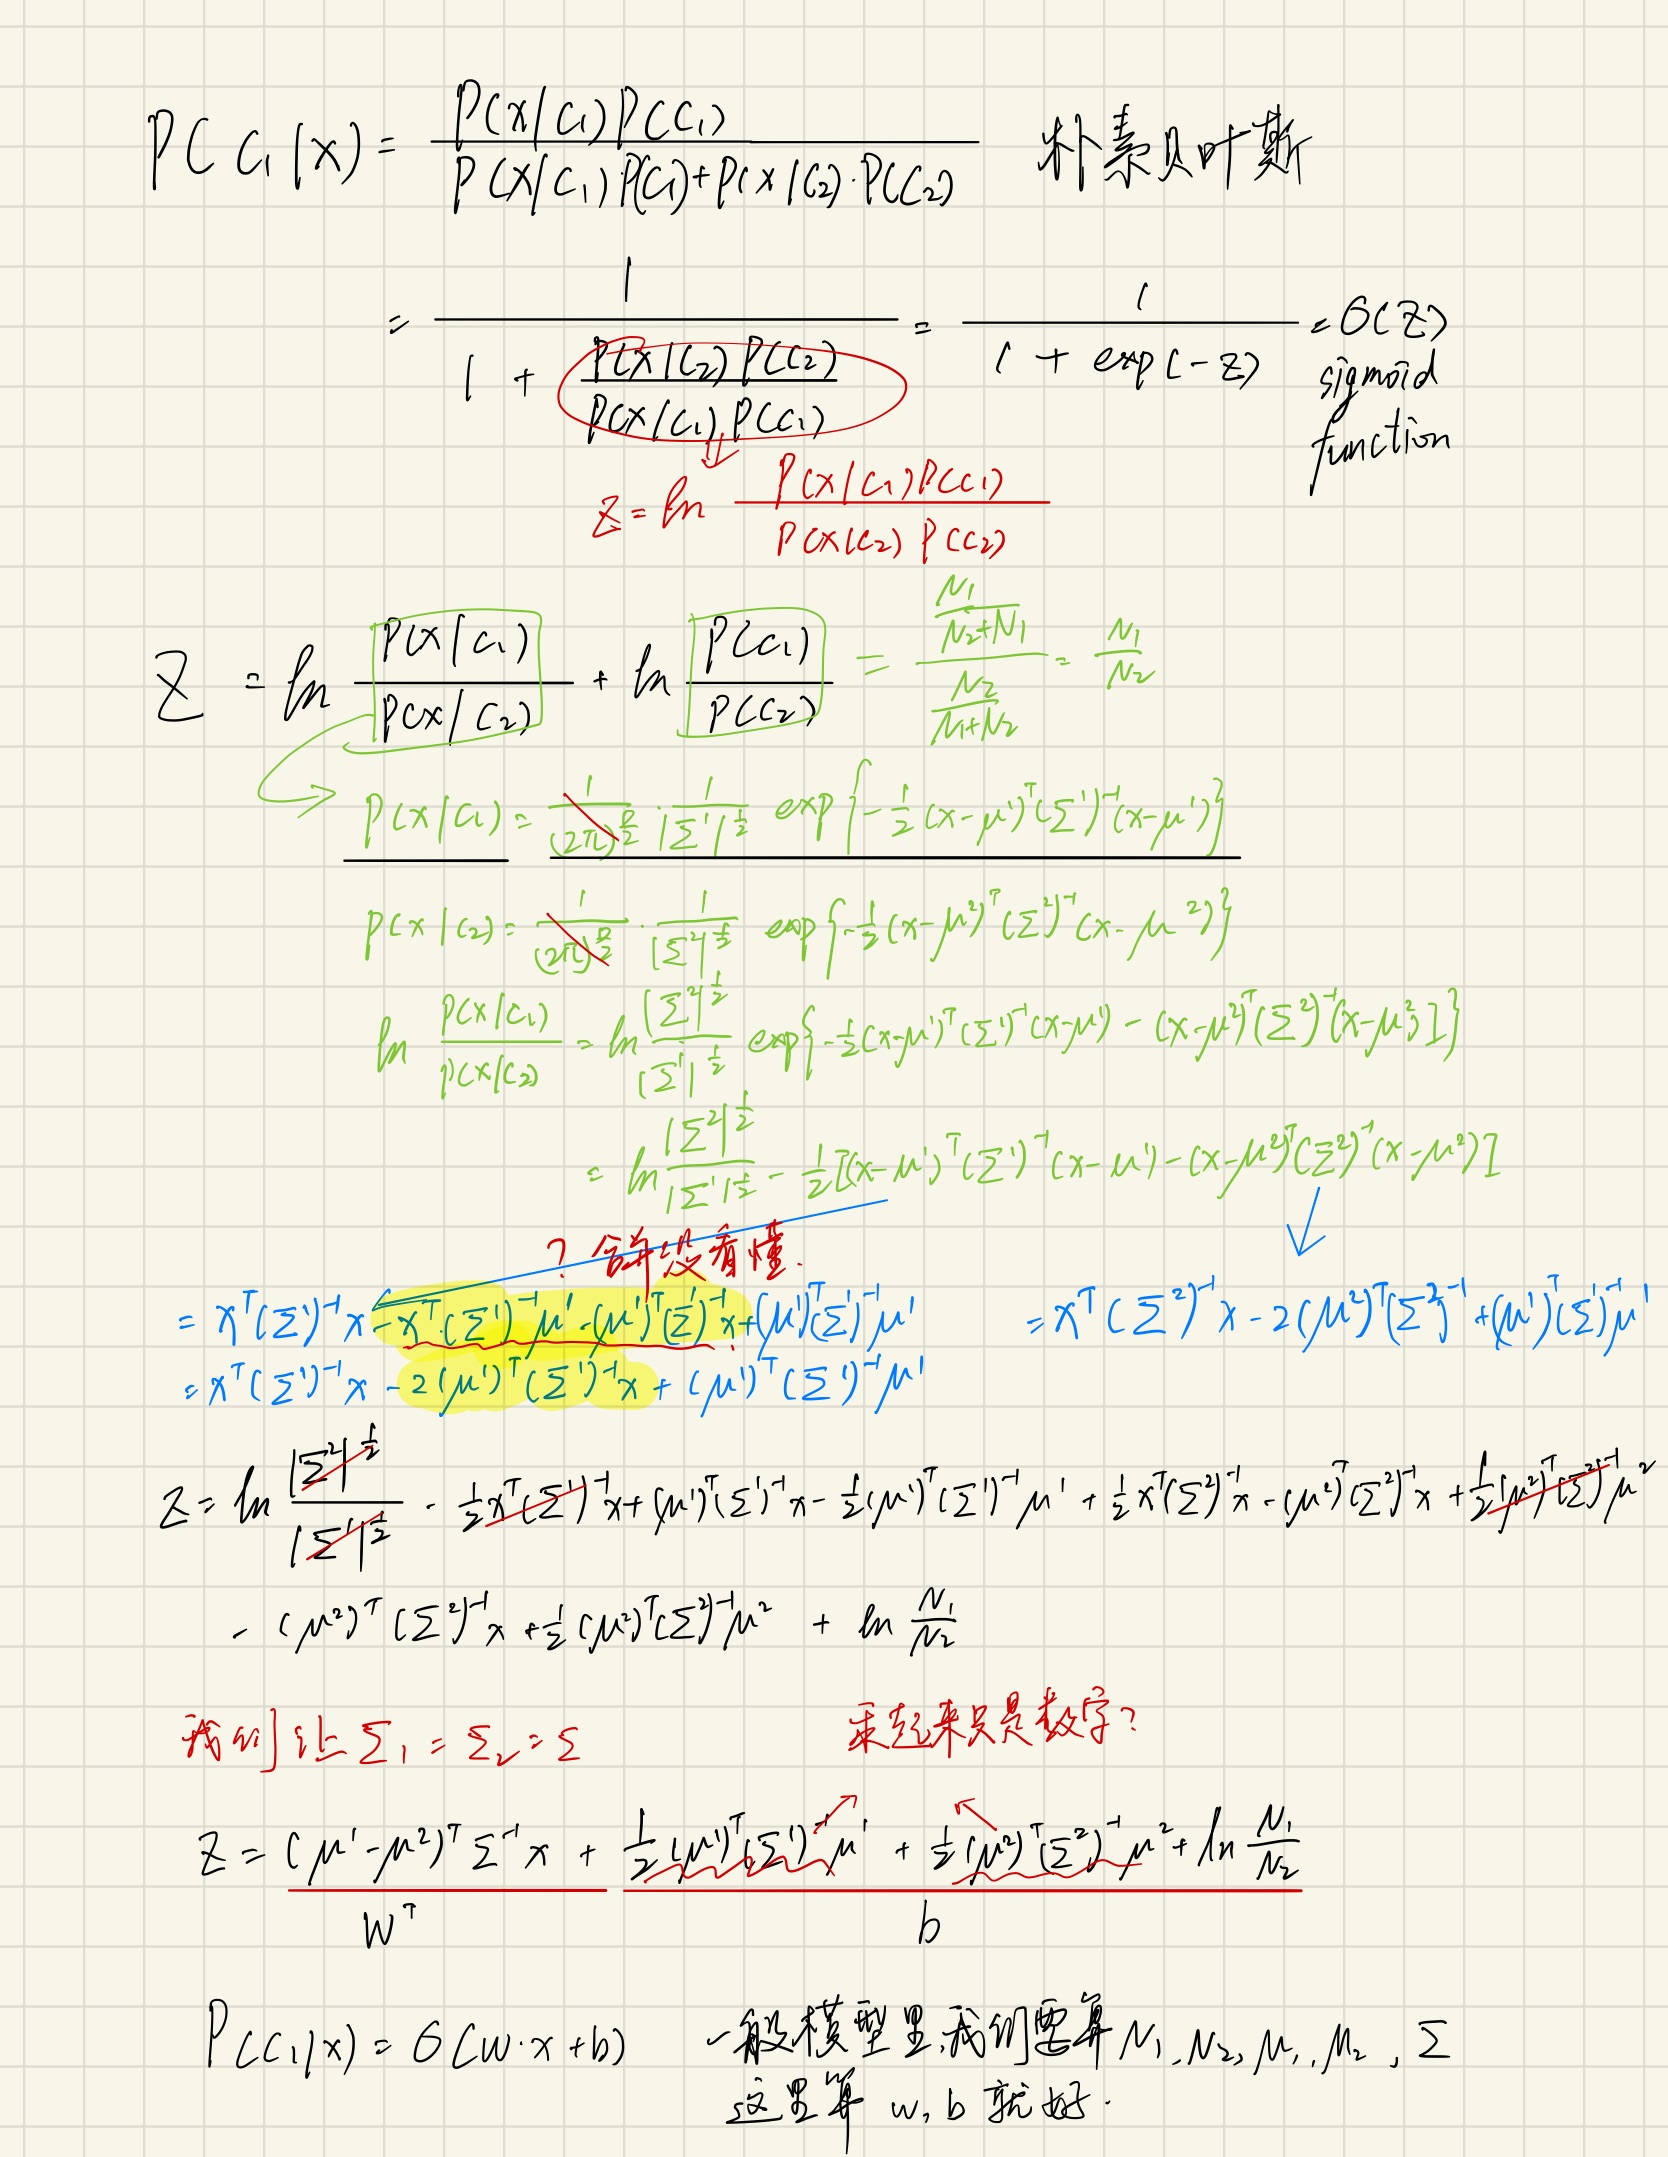 P(C₁|x) = P(x|C₁)P(C₁) / P(x|C₁)P(C₁)+P(x|C₂)·P(C₂) 朴素贝叶斯
= 1 / 1 + P(x|C₂)P(C₂) / P(x|C₁)P(C₁) = 1 / 1 + exp(-z) = σ(z)
sigmoid
function
z = ln P(x|C₁)P(C₁) / P(x|C₂)P(C₂)
z = ln P(x|C₁) / P(x|C₂) + ln P(C₁) / P(C₂) = N₁/(N₂+N₁) / N₂/(N₁+N₂) = N₁/N₂
P(x|C₁) = 1/(2π)^{D/2} · 1/|Σ¹|^{1/2} exp{-½(x-μ¹)ᵀ(Σ¹)⁻¹(x-μ¹)}
P(x|C₂) = 1/(2π)^{D/2} · 1/|Σ²|^{1/2} exp{-½(x-μ²)ᵀ(Σ²)⁻¹(x-μ²)}
ln P(x|C₁)/P(x|C₂) = ln |Σ²|^{1/2}/|Σ¹|^{1/2} exp{-½(x-μ¹)ᵀ(Σ¹)⁻¹(x-μ¹) - (x-μ²)ᵀ(Σ²)⁻¹(x-μ²)]}
= ln |Σ²|^{1/2}/|Σ¹|^{1/2} - ½[(x-μ¹)ᵀ(Σ¹)⁻¹(x-μ¹) - (x-μ²)ᵀ(Σ²)⁻¹(x-μ²)]
? 合并没看懂.
= xᵀ(Σ¹)⁻¹x - xᵀ·(Σ¹)⁻¹μ¹ - (μ¹)ᵀ(Σ¹)⁻¹x + (μ¹)ᵀ(Σ¹)⁻¹μ¹ = xᵀ(Σ²)⁻¹x - 2(μ²)ᵀ(Σ²)⁻¹ + (μ¹)ᵀ(Σ¹)⁻¹μ¹
= xᵀ(Σ¹)⁻¹x - 2(μ¹)ᵀ(Σ¹)⁻¹x + (μ¹)ᵀ(Σ¹)⁻¹μ¹
z = ln |Σ²|^{1/2}/|Σ¹|^{1/2} - ½xᵀ(Σ¹)⁻¹x + (μ¹)ᵀ(Σ¹)⁻¹x - ½(μ¹)ᵀ(Σ¹)⁻¹μ¹ + ½xᵀ(Σ²)⁻¹x - (μ²)ᵀ(Σ²)⁻¹x + ½(μ²)ᵀ(Σ²)⁻¹μ²
- (μ²)ᵀ(Σ²)⁻¹x + ½(μ²)ᵀ(Σ²)⁻¹μ² + ln N₁/N₂
我们让 Σ₁ = Σ₂ = Σ 乘起来只是数字?
z = (μ¹-μ²)ᵀΣ⁻¹x + ½(μ¹)ᵀ(Σ¹)⁻¹μ¹ + ½(μ²)ᵀ(Σ²)⁻¹μ² + ln N₁/N₂
wᵀ b
P(C₁|x) = σ(w·x+b) 一般模型里,我们要算 N₁, N₂, μ₁, μ₂, Σ
这里算 w, b 就好.